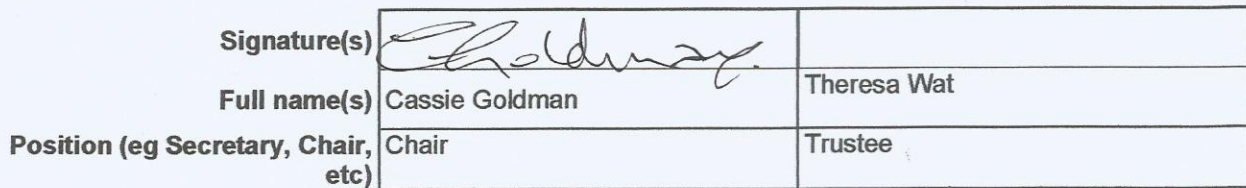 Signature(s)
Full name(s) Cassie Goldman Theresa Wat
Position (eg Secretary, Chair, Chair Trustee
etc)